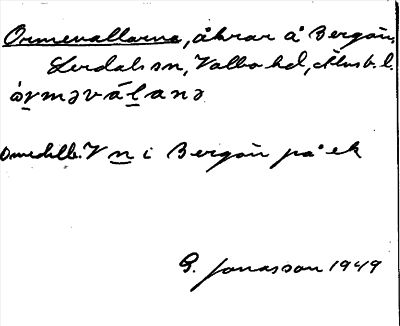 Ormevallarna, åkrar å Bergön,
Lerdals sn, Valbo hd, Älvsb. l.
ò̀r̲məvál̲anə
Omedelb. V n̲ i Bergön på ek
G. Jonasson 1949